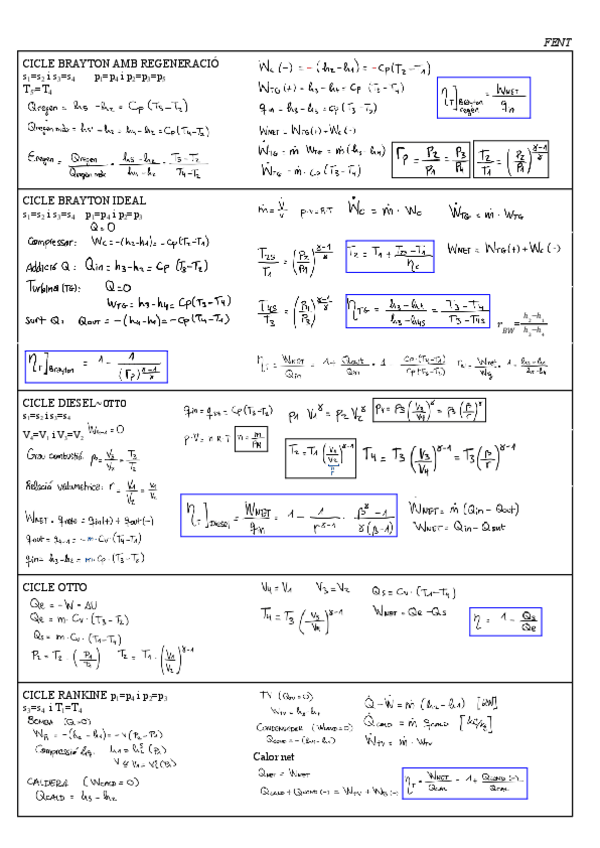 FENT
CICLE BRAYTON AMB REGENERACIÓ
s₁=s₂ i s₃=s₄ p₁=p₄ i p₂=p₃=p₅
T₅=T₄
Qregen = h₅ - h₂ = Cp (T₅-T₂)
Qregen màx = h₅' - h₂ = h₄-h₂ = Cp(T₄-T₂)
Eregen = Qregen / Qregen màx = h₅-h₂ / h₄-h₂ = T₅-T₂ / T₄-T₂
Ẇc (-) = - (h₂-h₁) = -Cp(T₂-T₁)
WTG (+) = h₃-h₄ = Cp (T₃-T₄)
qin = h₃-h₅ = Cp (T₃-T₅)
WNET = WTG(+) + Wc(-)
ẆTG = ṁ WTG = ṁ (h₃-h₄)
ẆTG = ṁ · Cp (T₃-T₄)
η_T]Brayton regen = WNET / qin
rp = P₂/P₁ = P₃/P₄
T₂/T₁ = (P₂/P₁)^(γ-1/γ)
CICLE BRAYTON IDEAL
s₁=s₂ i s₃=s₄ p₁=p₄ i p₂=p₃
Q=0
Compressor: Wc = -(h₂-h₁) = -Cp(T₂-T₁)
Addició Q: Qin = h₃-h₂ = Cp (T₃-T₂)
Turbina (TG): Q=0
WTG = h₃-h₄ = Cp(T₃-T₄)
Surt Q: Qout = -(h₄-h₁) = -Cp(T₄-T₁)
η_T]Brayton = 1 - 1/(rp)^(γ-1/γ)
ṁ = V̇/v p·v=RT Ẇc = ṁ · Wc ẆTG = ṁ · WTG
T₂s/T₁ = (P₂/P₁)^(γ-1/γ)
T₂ = T₁ + (T₂s-T₁)/ηc
WNET = WTG(+) + Wc(-)
T₄s/T₃ = (P₄/P₁)^(γ-1/γ)
ηTG = h₃-h₄ / h₃-h₄s = T₃-T₄ / T₃-T₄s
r_BW = h₂-h₁ / h₃-h₄
η_T = WNET/Qin = 1+ Qout/Qin = 1
CICLE DIESEL~OTTO
s₁=s₂ i s₃=s₄
V₄=V₁ i V₃=V₂
Grau combustió β = V₃/V₂ = T₃/T₂
Relació volumètrica: r = V₁/V₂ = v₁/v₂
WNET = qneto = qin(+) + qout(-)
qout = q₄₋₁ = -m·Cv·(T₄-T₁)
qin = h₃-h₂ = m·Cp·(T₃-T₂)
qin = q₂₃ = Cp(T₃-T₂)
p₁ V₁^γ = p₂ V₂^γ
P₄ = P₃ (V₃/V₄)^γ = P₃ (β/r)^γ
p·V = n R T
n = m/PM
T₂ = T₁ (V₁/V₂)^(γ-1)
r
T₄ = T₃ (V₃/V₄)^(γ-1) = T₃ (β/r)^(γ-1)
η_T]DIESEL = WNET/qin = 1 - 1/r^(γ-1) · β^γ - 1 / γ(β-1)
ẆNET = ṁ (Qin - Qout)
WNET = Qin - Qout
CICLE OTTO
Qe = -W = ΔU
Qe = m · Cv · (T₃-T₂)
Qs = m · Cv · (T₁-T₄)
T₂ = T₁ · (V₁/V₂)^(γ-1)
V₄ = V₁ V₃ = V₂
T₄ = T₃ (V₃/V₄)^(γ-1)
Qs = Cv · (T₁-T₄)
WNET = Qe - Qs
η = 1 - Qs/Qe
CICLE RANKINE p₁=p₄ i p₂=p₃
s₃=s₄ i T₁=T₄
BOMBA (Q=0)
WB = -(h₂-h₁) = -v (P₂-P₁)
CALDERA (WCALD=0)
QCALD = h₃ - h₂
TV (QTV=0)
WTV = h₃-h₄
CONDENSADOR (WCOND=0)
QCOND = -(h₄-h₁)
Calor net
QNET = WNET
QCALD + QCOND(-) = WTV + WB(-)
Q̇ - Ẇ = ṁ (h₂-h₁) [kW]
Q̇CALD = ṁ qCALD
ẆTV = ṁ · WTV
η_T = WNET/QCAL = 1 + QCOND(-)/QCAL